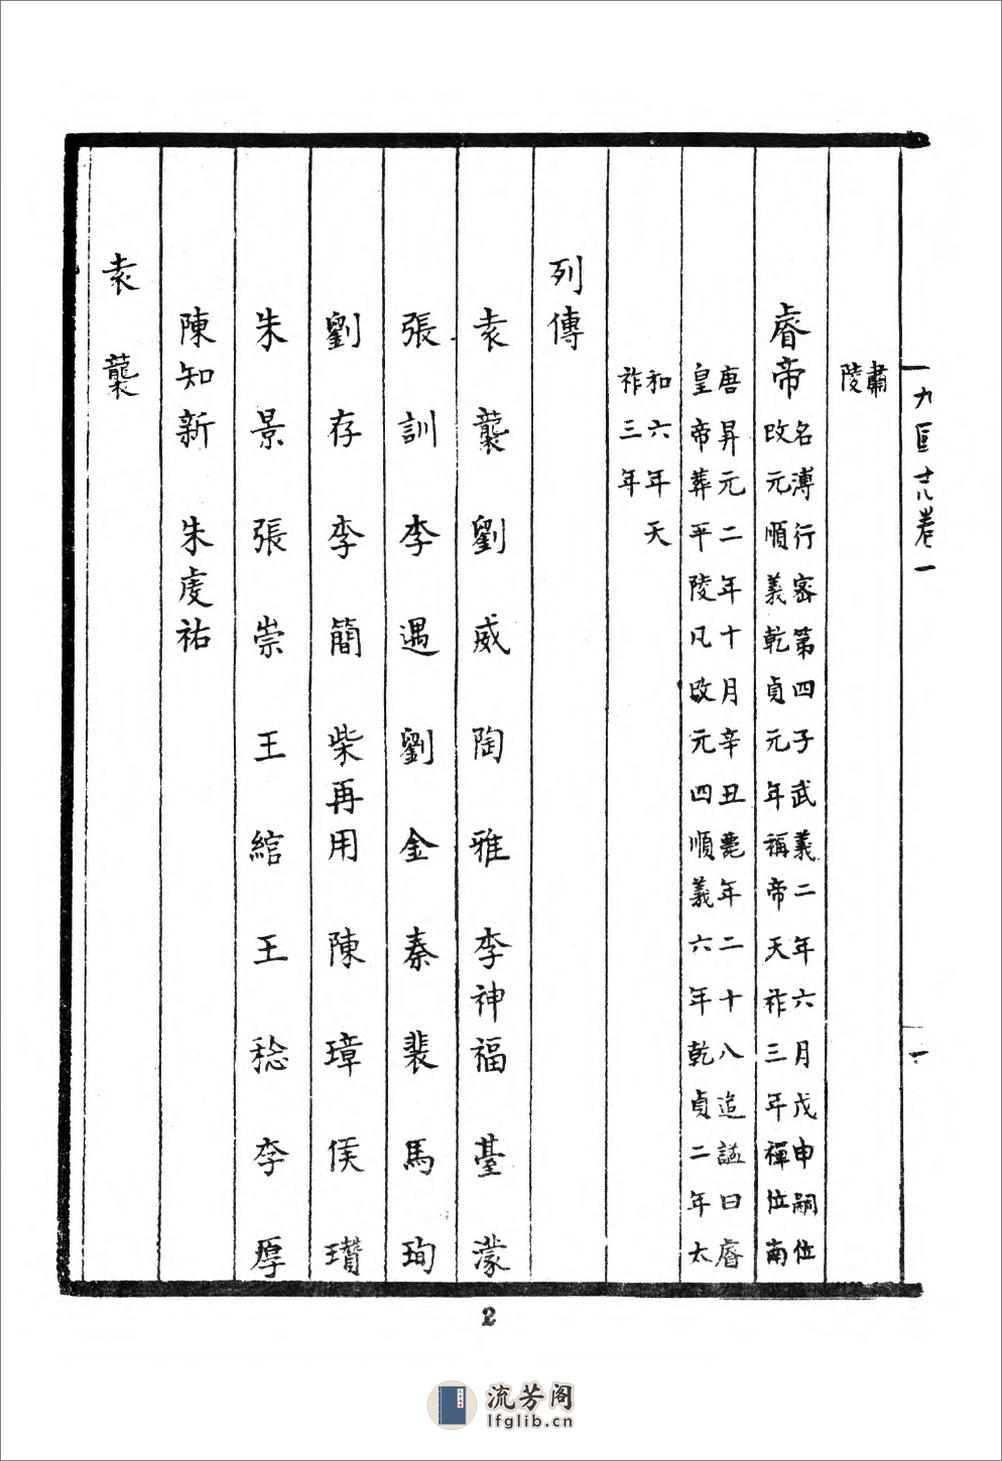 九囯志卷一
一
肅
陵
睿帝
名溥行密第四子武義二年六月戊申嗣位
改元順義乾貞元年稱帝天祚三年禪位南
唐昇元二年十月辛丑薨年二十八追謚曰睿
皇帝葬平陵凡改元四順義六年乾貞二年太
和六年天
祚三年
列傳
袁襲 劉威 陶雅 李神福 臺濛
張訓 李遇 劉金 秦裴 馬珣
劉存 李簡 柴再用 陳璋 侯瓚
朱景 張崇 王綰 王稔 李厚
陳知新 朱虔祐
袁襲
2
流芳阁
lfglib.cn